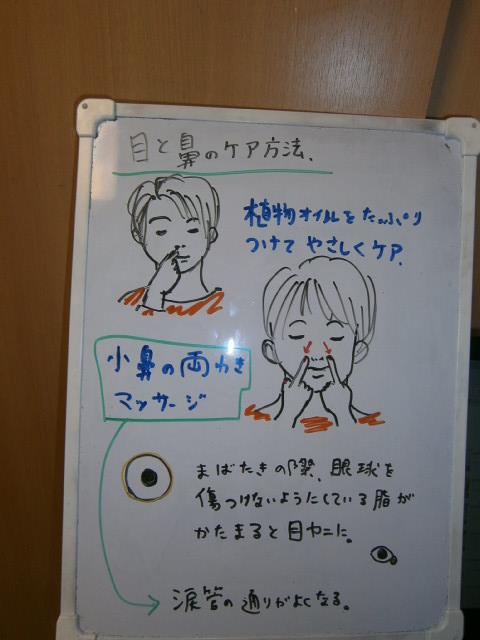 目と鼻のケア方法、
植物オイルをたっぷり
つけて やさしくケア.
小鼻の両わき
マッサージ
まばたきの際、眼球を
傷つけないようにしている脂が
かたまると目ヤニに。
涙管の通りがよくなる。